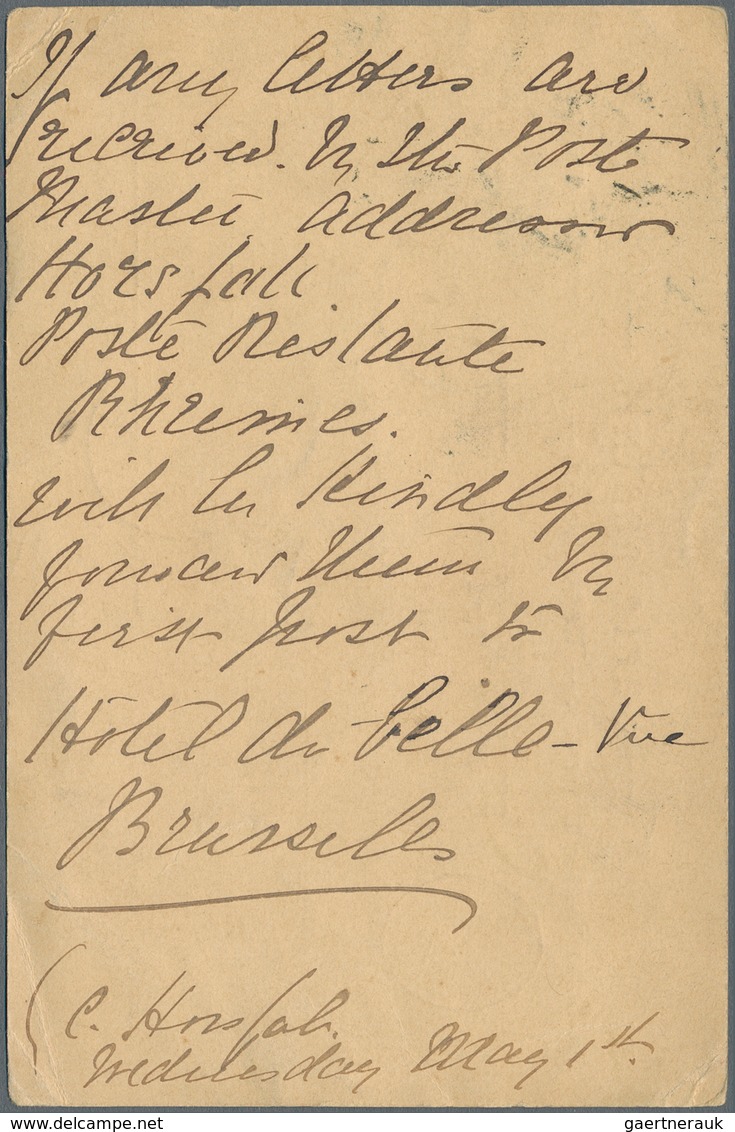 If any letters are
received by the Post
Master addressed
Horsfall
Poste Restante
Rheims.
will he Kindly
forward them by
first post to
Hotel de belle-Vue
Brussels
C. Horsfall.
Wednesday May 1st.
gaertnerauk